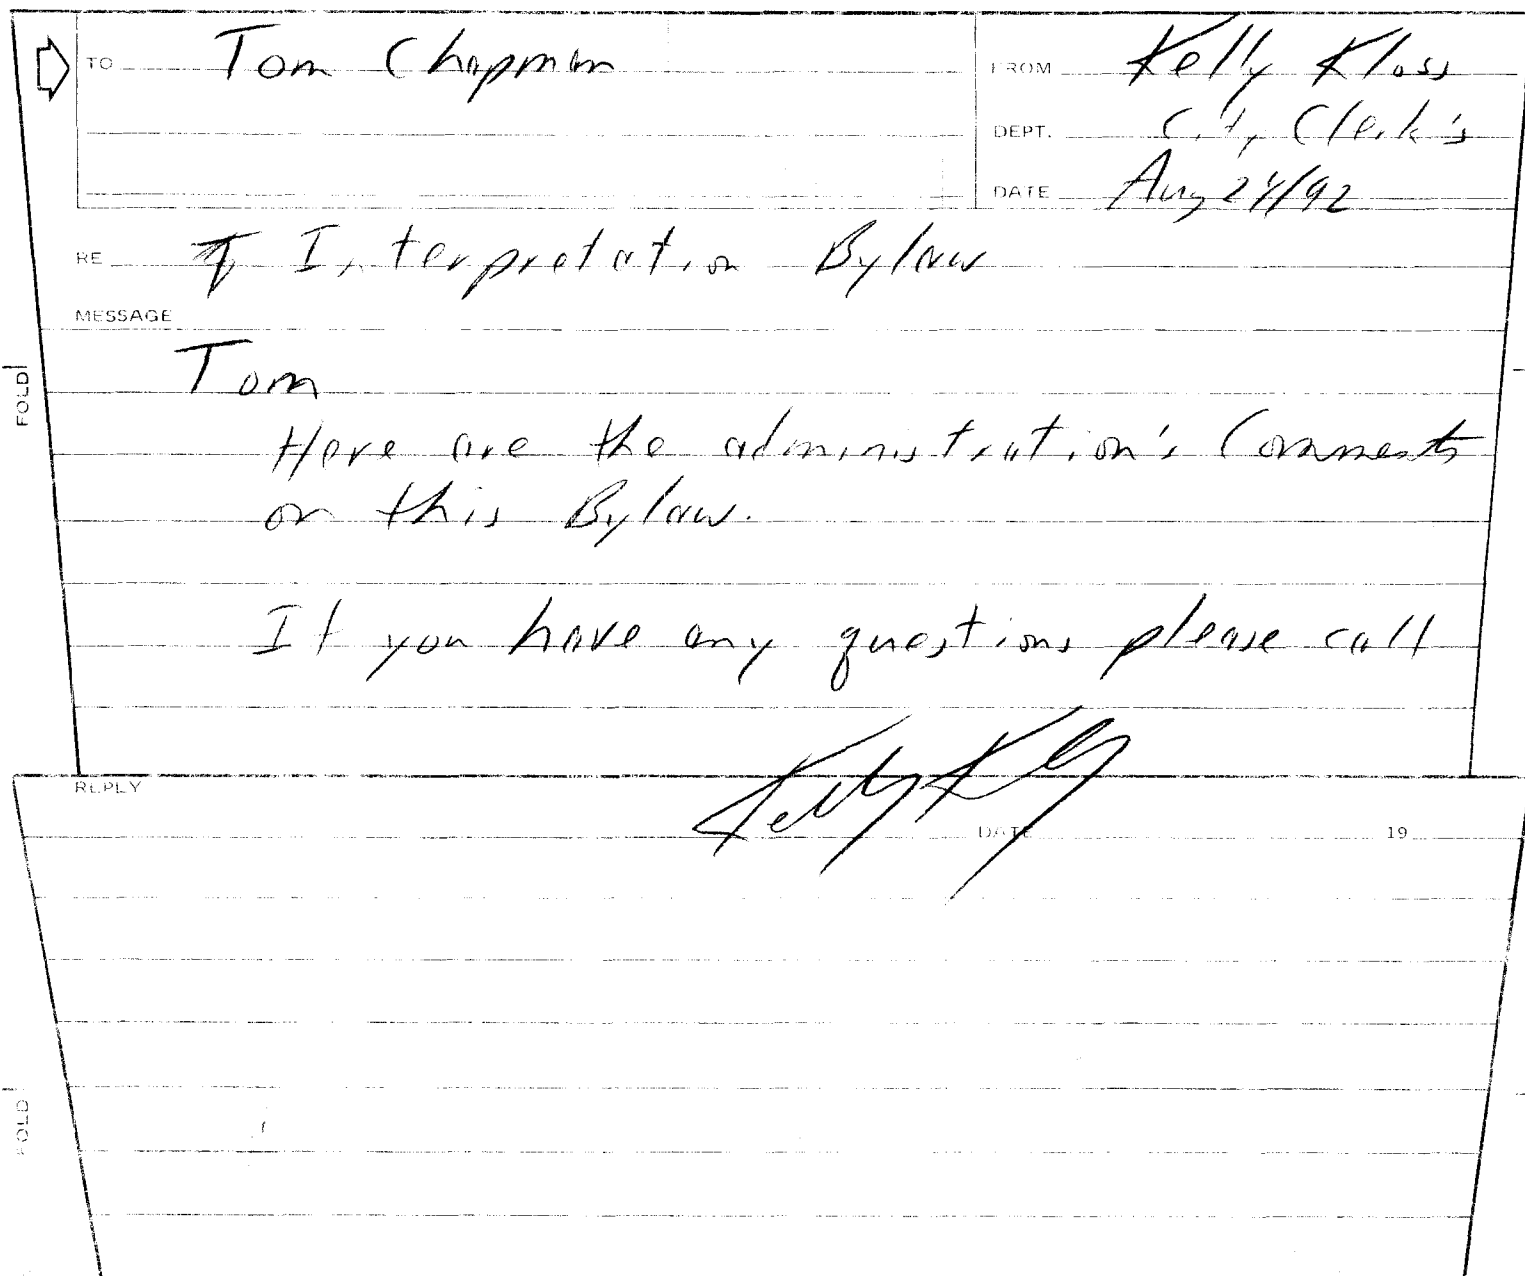 TO Tom Chapman
FROM Kelly Kloss
DEPT. City Clerk's
DATE Aug 24/92
RE Interpretation Bylaw
MESSAGE
Tom
Here are the administration's Comments
on this Bylaw.
If you have any questions please call
Kelly
REPLY
DATE 19
FOLD
FOLD